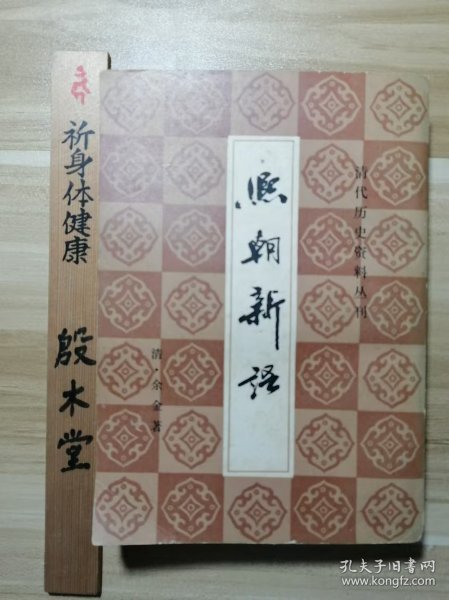 祈身体健康
殷木堂
清代历史资料丛刊
熙朝新語
清·余金著
孔夫子旧书网
www.kongfz.com